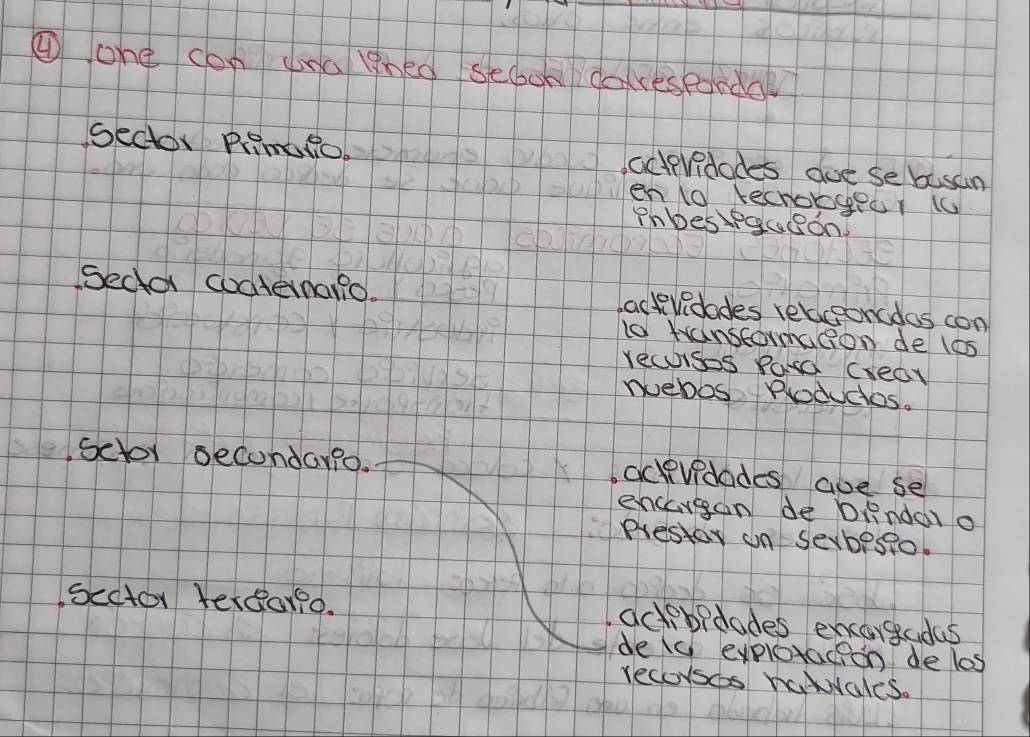 ④ one con una lined sebon correspondal
.Sector Primario.
.actividades que se buscan
en la tecnologear la
inbestigación.
.Sector coaternario.
.actividades relacioncdas con
la transcormación de los
recursos Para crear
nuebos Productos.
.Sctor secundario.
.actividades que se
encargan de brindar o
Prestar un serbisio.
.Sector terciario.
.actibidades encargadas
de la explotación de los
recorsos naturales.